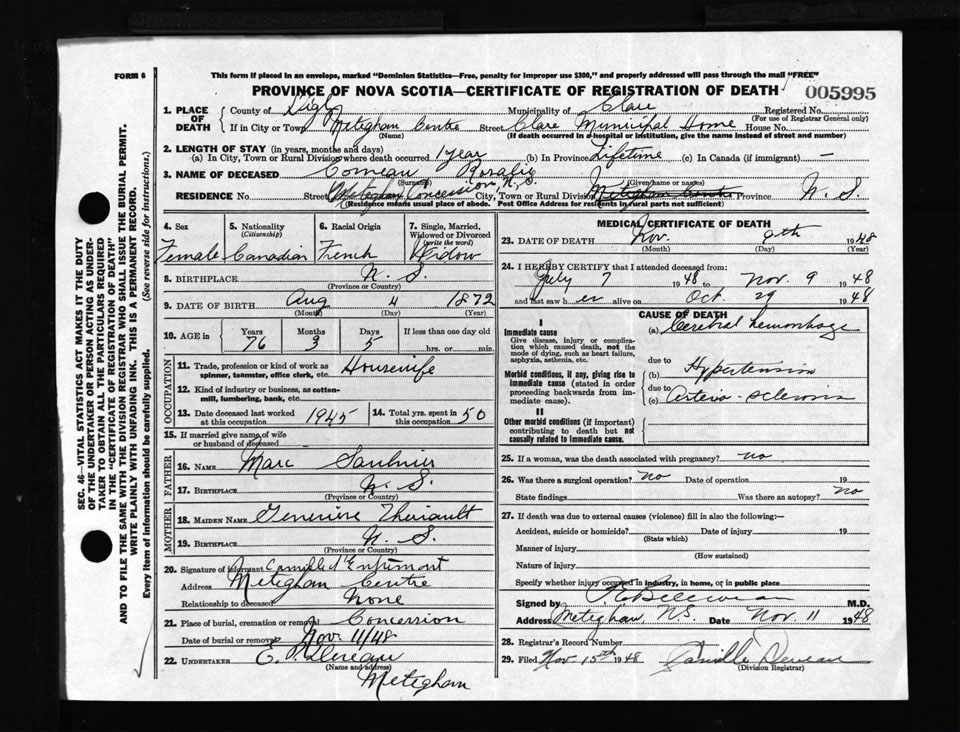 FORM 6
This form if placed in an envelope, marked "Dominion Statistics—Free, penalty for improper use $300," and properly addressed will pass through the mail "FREE"
PROVINCE OF NOVA SCOTIA—CERTIFICATE OF REGISTRATION OF DEATH
005995
1. PLACE OF DEATH
County of Digby Municipality of Clare Registered No.
(For use of Registrar General only)
If in City or Town Meteghan Centre Street Clare Municipal Home House No.
(Name) (If death occurred in a hospital or institution, give the name instead of street and number)
2. LENGTH OF STAY (in years, months and days)
(a) In City, Town or Rural Division where death occurred 1 year (b) In Province Lifetime (c) In Canada (if immigrant) —
3. NAME OF DECEASED Comeau Rosalie
(Surname) (Given name or names)
RESIDENCE No. Street Meteghan Concession, N.S. City, Town or Rural Division Meteghan Centre Province N. S.
(Residence means usual place of abode. Post Office Address for residents in rural parts not sufficient)
4. Sex
Female
5. Nationality
(Citizenship)
Canadian
6. Racial Origin
French
7. Single, Married, Widowed or Divorced
(write the word)
Widow
8. BIRTHPLACE N. S.
(Province or Country)
9. DATE OF BIRTH Aug 4 1872
(Month) (Day) (Year)
10. AGE in Years Months Days If less than one day old
76 3 5 hrs. or min.
OCCUPATION
11. Trade, profession or kind of work as spinner, teamster, office clerk, etc. Housewife
12. Kind of industry or business, as cotton-mill, lumbering, bank, etc.
13. Date deceased last worked at this occupation 1945
14. Total yrs. spent in this occupation 50
15. If married give name of wife or husband of deceased
FATHER
16. NAME Marc Saulnier
17. BIRTHPLACE N. S.
(Province or Country)
MOTHER
18. MAIDEN NAME Genevieve Theriault
19. BIRTHPLACE N. S.
(Province or Country)
20. Signature of informant Camille d'Entremont
Address Meteghan Centre
Relationship to deceased None
21. Place of burial, cremation or removal Concession
Date of burial or removal Nov. 11/48
22. UNDERTAKER
(Name and address)
Meteghan
MEDICAL CERTIFICATE OF DEATH
23. DATE OF DEATH Nov. 9th 1948
(Month) (Day) (Year)
24. I HEREBY CERTIFY that I attended deceased from:
July 7 1948 to Nov. 9 1948
and last saw her alive on Oct. 29 1948
CAUSE OF DEATH
I
Immediate cause
Give disease, injury or complication which caused death, not the mode of dying, such as heart failure, asphyxia, asthenia, etc.
(a) Cerebral hemorrhage
due to
Morbid conditions, if any, giving rise to immediate cause (stated in order proceeding backwards from immediate cause).
(b) Hypertension
due to
(c) Arterio-sclerosis
II
Other morbid conditions (if important) contributing to death but not causally related to immediate cause.
25. If a woman, was the death associated with pregnancy? no
26. Was there a surgical operation? no Date of operation 19
State findings Was there an autopsy? no
27. If death was due to external causes (violence) fill in also the following:—
Accident, suicide or homicide? Date of injury 19
(State which)
Manner of injury
(How sustained)
Nature of injury
Specify whether injury occurred in industry, in home, or in public place
Signed by M.D.
Address Meteghan, N.S. Date Nov. 11 1948
28. Registrar's Record Number
29. Filed Nov. 15th 1948 Camille Deveau
(Division Registrar)
SEC. 46—VITAL STATISTICS ACT MAKES IT THE DUTY
OF THE UNDERTAKER OR PERSON ACTING AS UNDER-
TAKER TO OBTAIN ALL THE PARTICULARS REQUIRED
IN THE "CERTIFICATE OF REGISTRATION OF DEATH"
AND TO FILE THE SAME WITH THE DIVISION REGISTRAR WHO SHALL ISSUE THE BURIAL PERMIT.
WRITE PLAINLY WITH UNFADING INK. THIS IS A PERMANENT RECORD.
Every item of information should be carefully supplied. (See reverse side for instructions.)